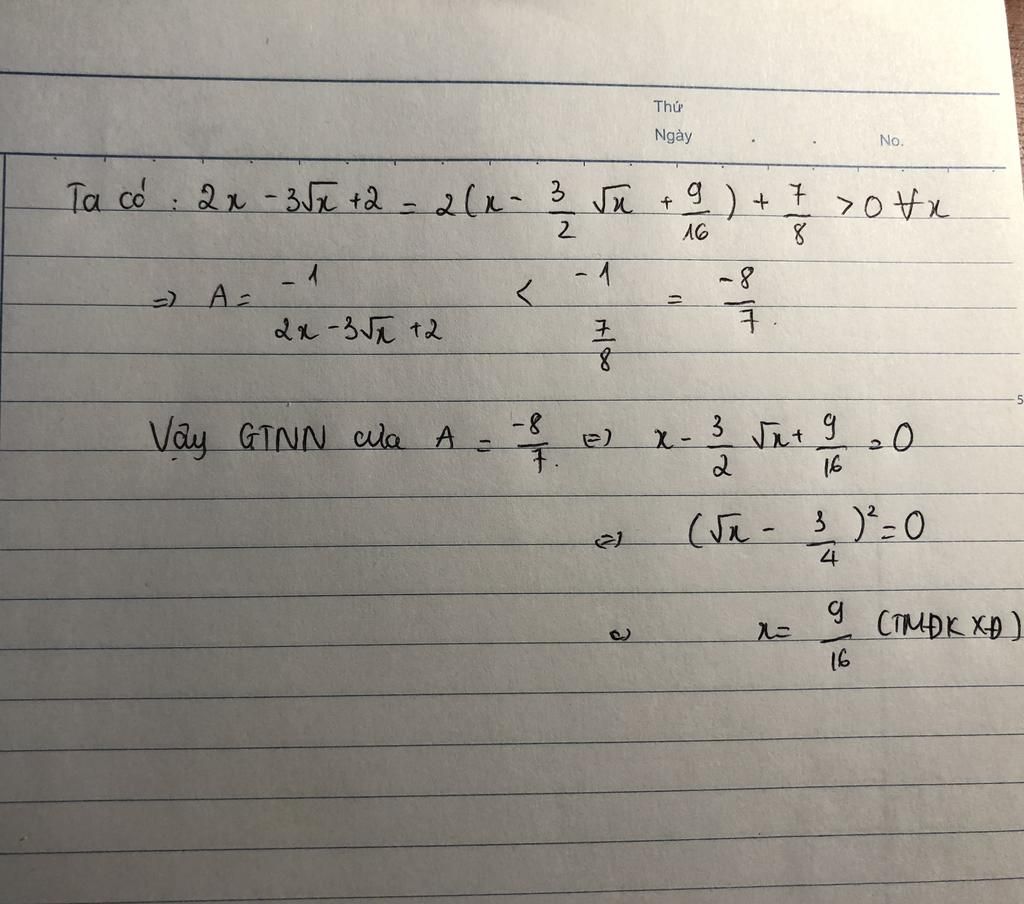 Thứ
Ngày . . No.
Ta có : 2x - 3√x + 2 = 2(x - 3/2 √x + 9/16) + 7/8 > 0 ∀x
=> A = -1/(2x - 3√x + 2) < -1/(7/8) = -8/7.
5
Vậy GTNN của A = -8/7. <=> x - 3/2 √x + 9/16 = 0
<=> (√x - 3/4)² = 0
<=> x = 9/16 (TMĐKXĐ)